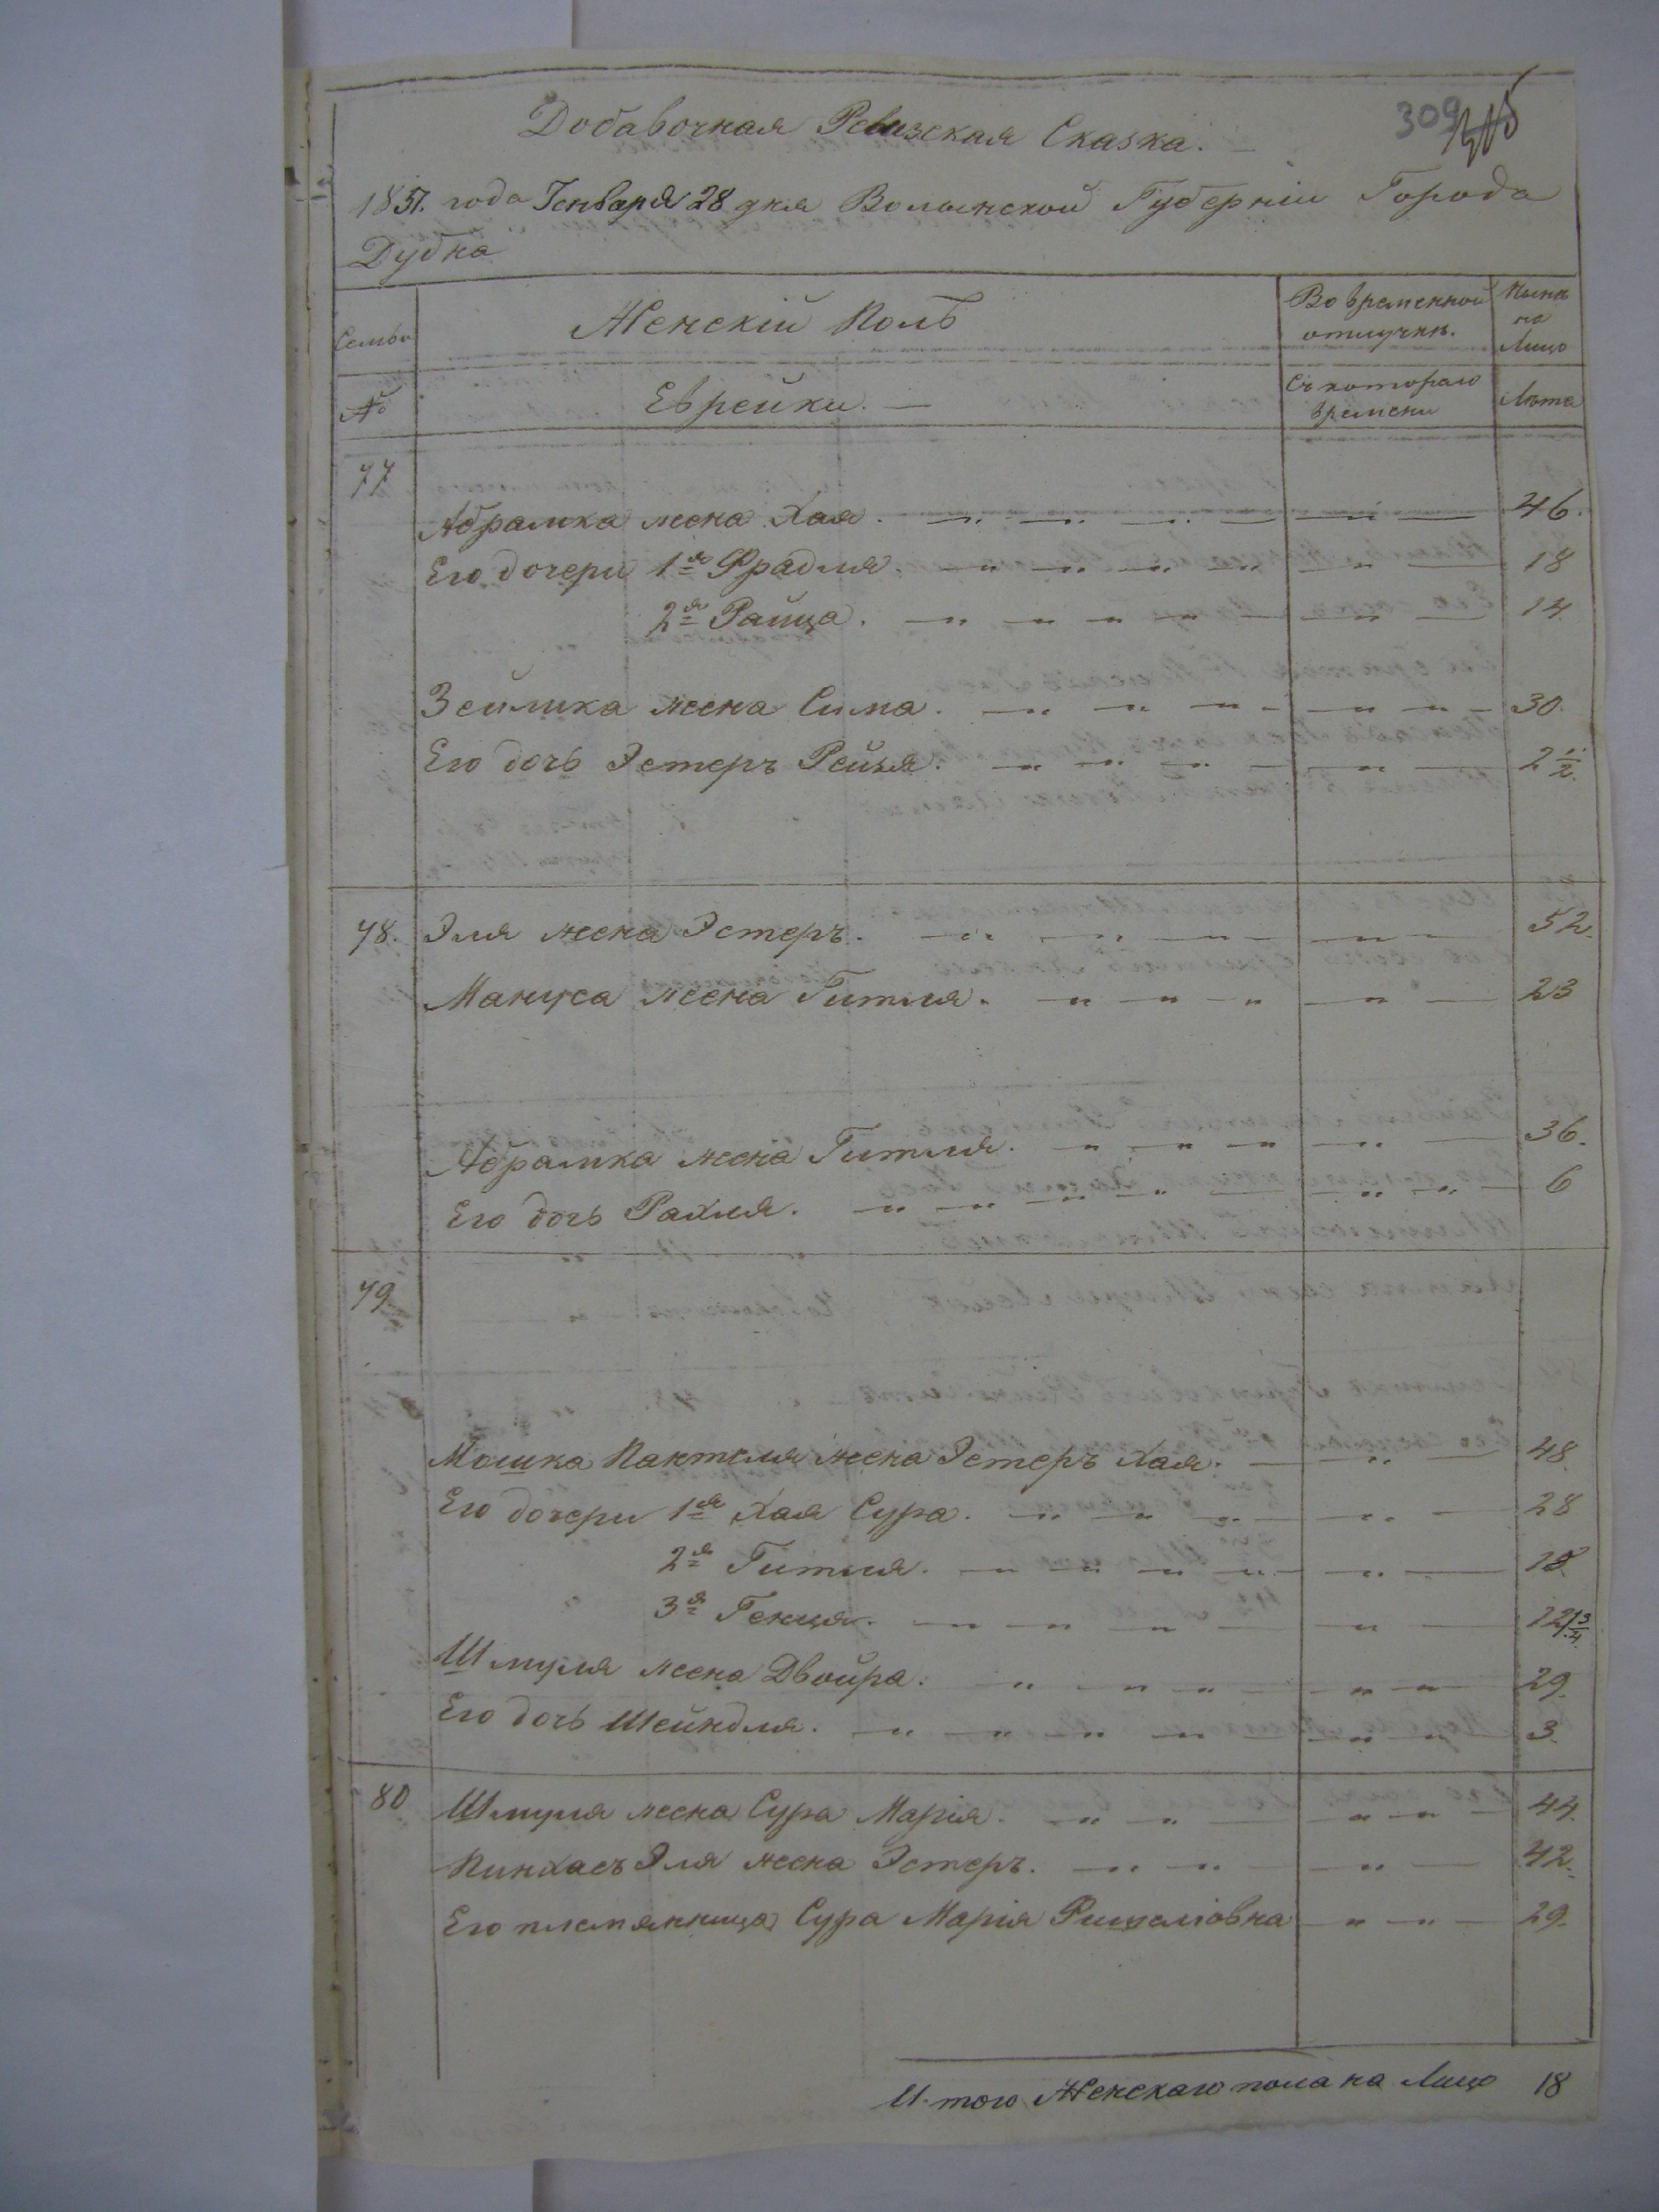 309
Добавочная Ревизская Сказка.
1851. года Генваря 28 дня Волынской Губерніи Города
Дубна
Семьи
Женскій Полъ
Во временной отлучкѣ.
Нынѣ на Лицо
№
Еврейки. —
Съ котораго времени
Лѣта
77
Абрамка жена Хая. 46.
Его дочери 1я Фрадля. 18
2я Райца. 14.
Зейлика жена Сима. 30.
Его дочь Эстеръ Рейзя. 2 1/2.
78. Эля жена Эстеръ. 52.
Мануса жена Гитля. 23
Абрамка жена Гитля. 36.
Его дочь Рахля. 6
79.
Мошка Пантеля жена Эстеръ Хая. 48.
Его дочери 1я Хая Сура. 28
2я Гитля. 18.
3я Генця.
Шмуля жена Двойра. 29.
Его дочь Шейндля. 3.
80 Шмуля жена Сура Марія. 44.
Пинхасъ Эля жена Эстеръ. 42.
Его племянница Сура Марія 29.
И того Женскаго пола на Лицо 18